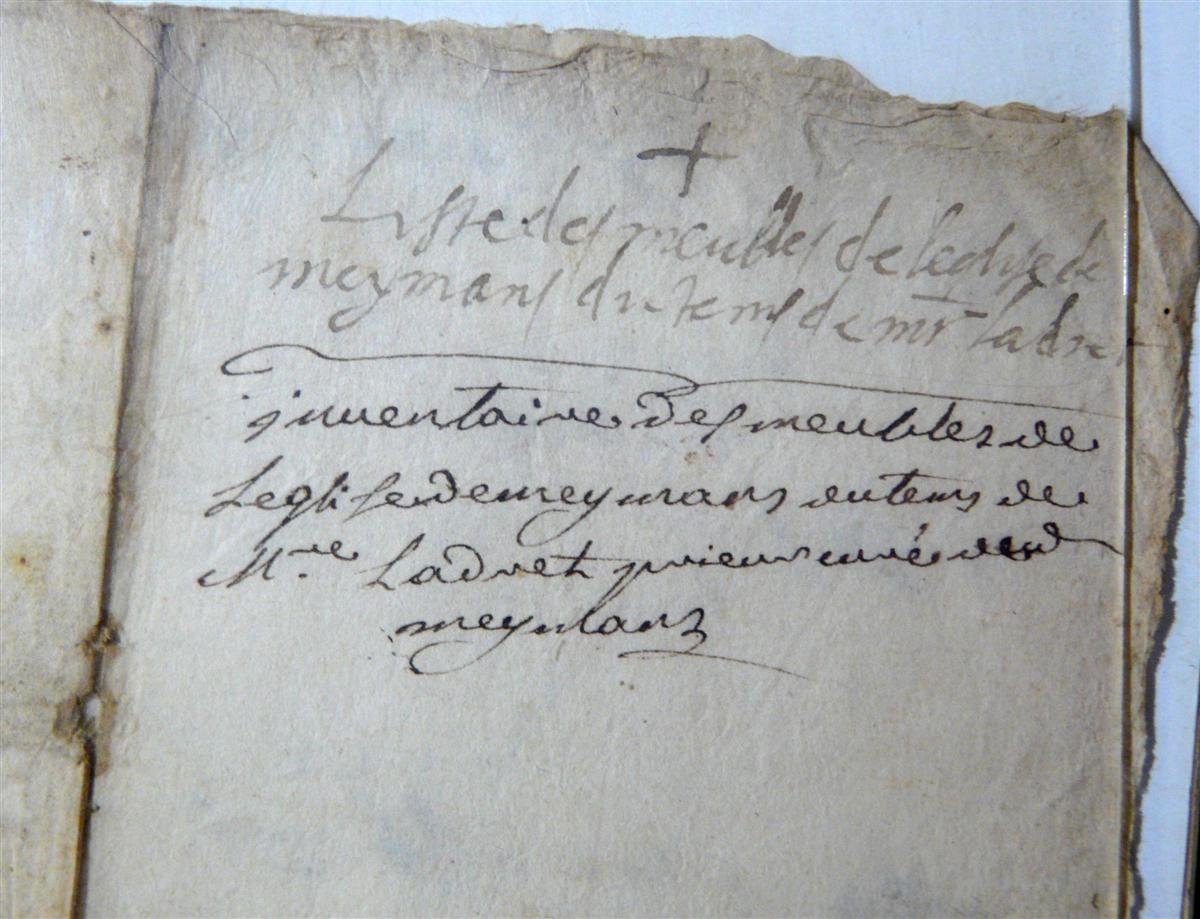 +
Liste des meubles de leglise de
meymans du tems de mr ladret
inventaire des meubles de
Leglise de meymans du tems de
M.re Ladret prieur curé dud
meymans